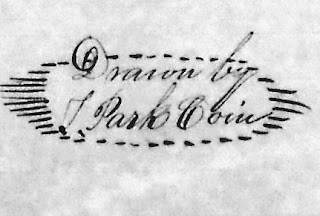 Drawn by
J Park Coin